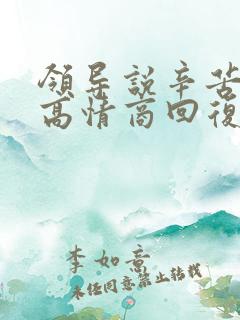 領导説辛苦
高情商回復
李如意
未经同意禁止转载